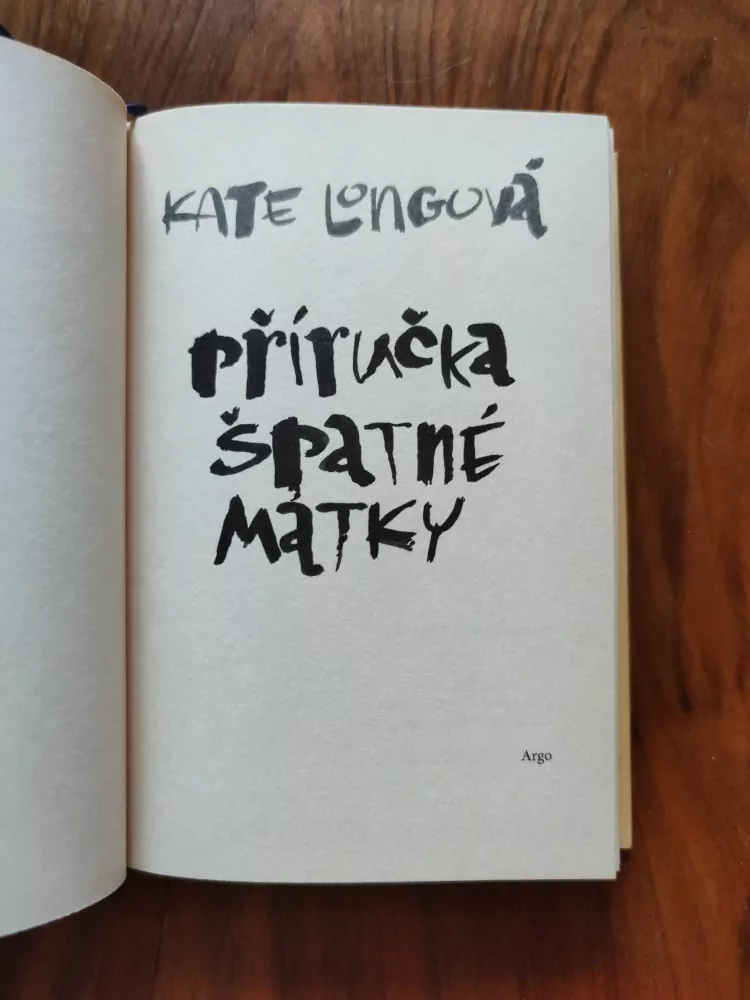 KATE LONGOVÁ
příručka
špatné
MATKY
Argo